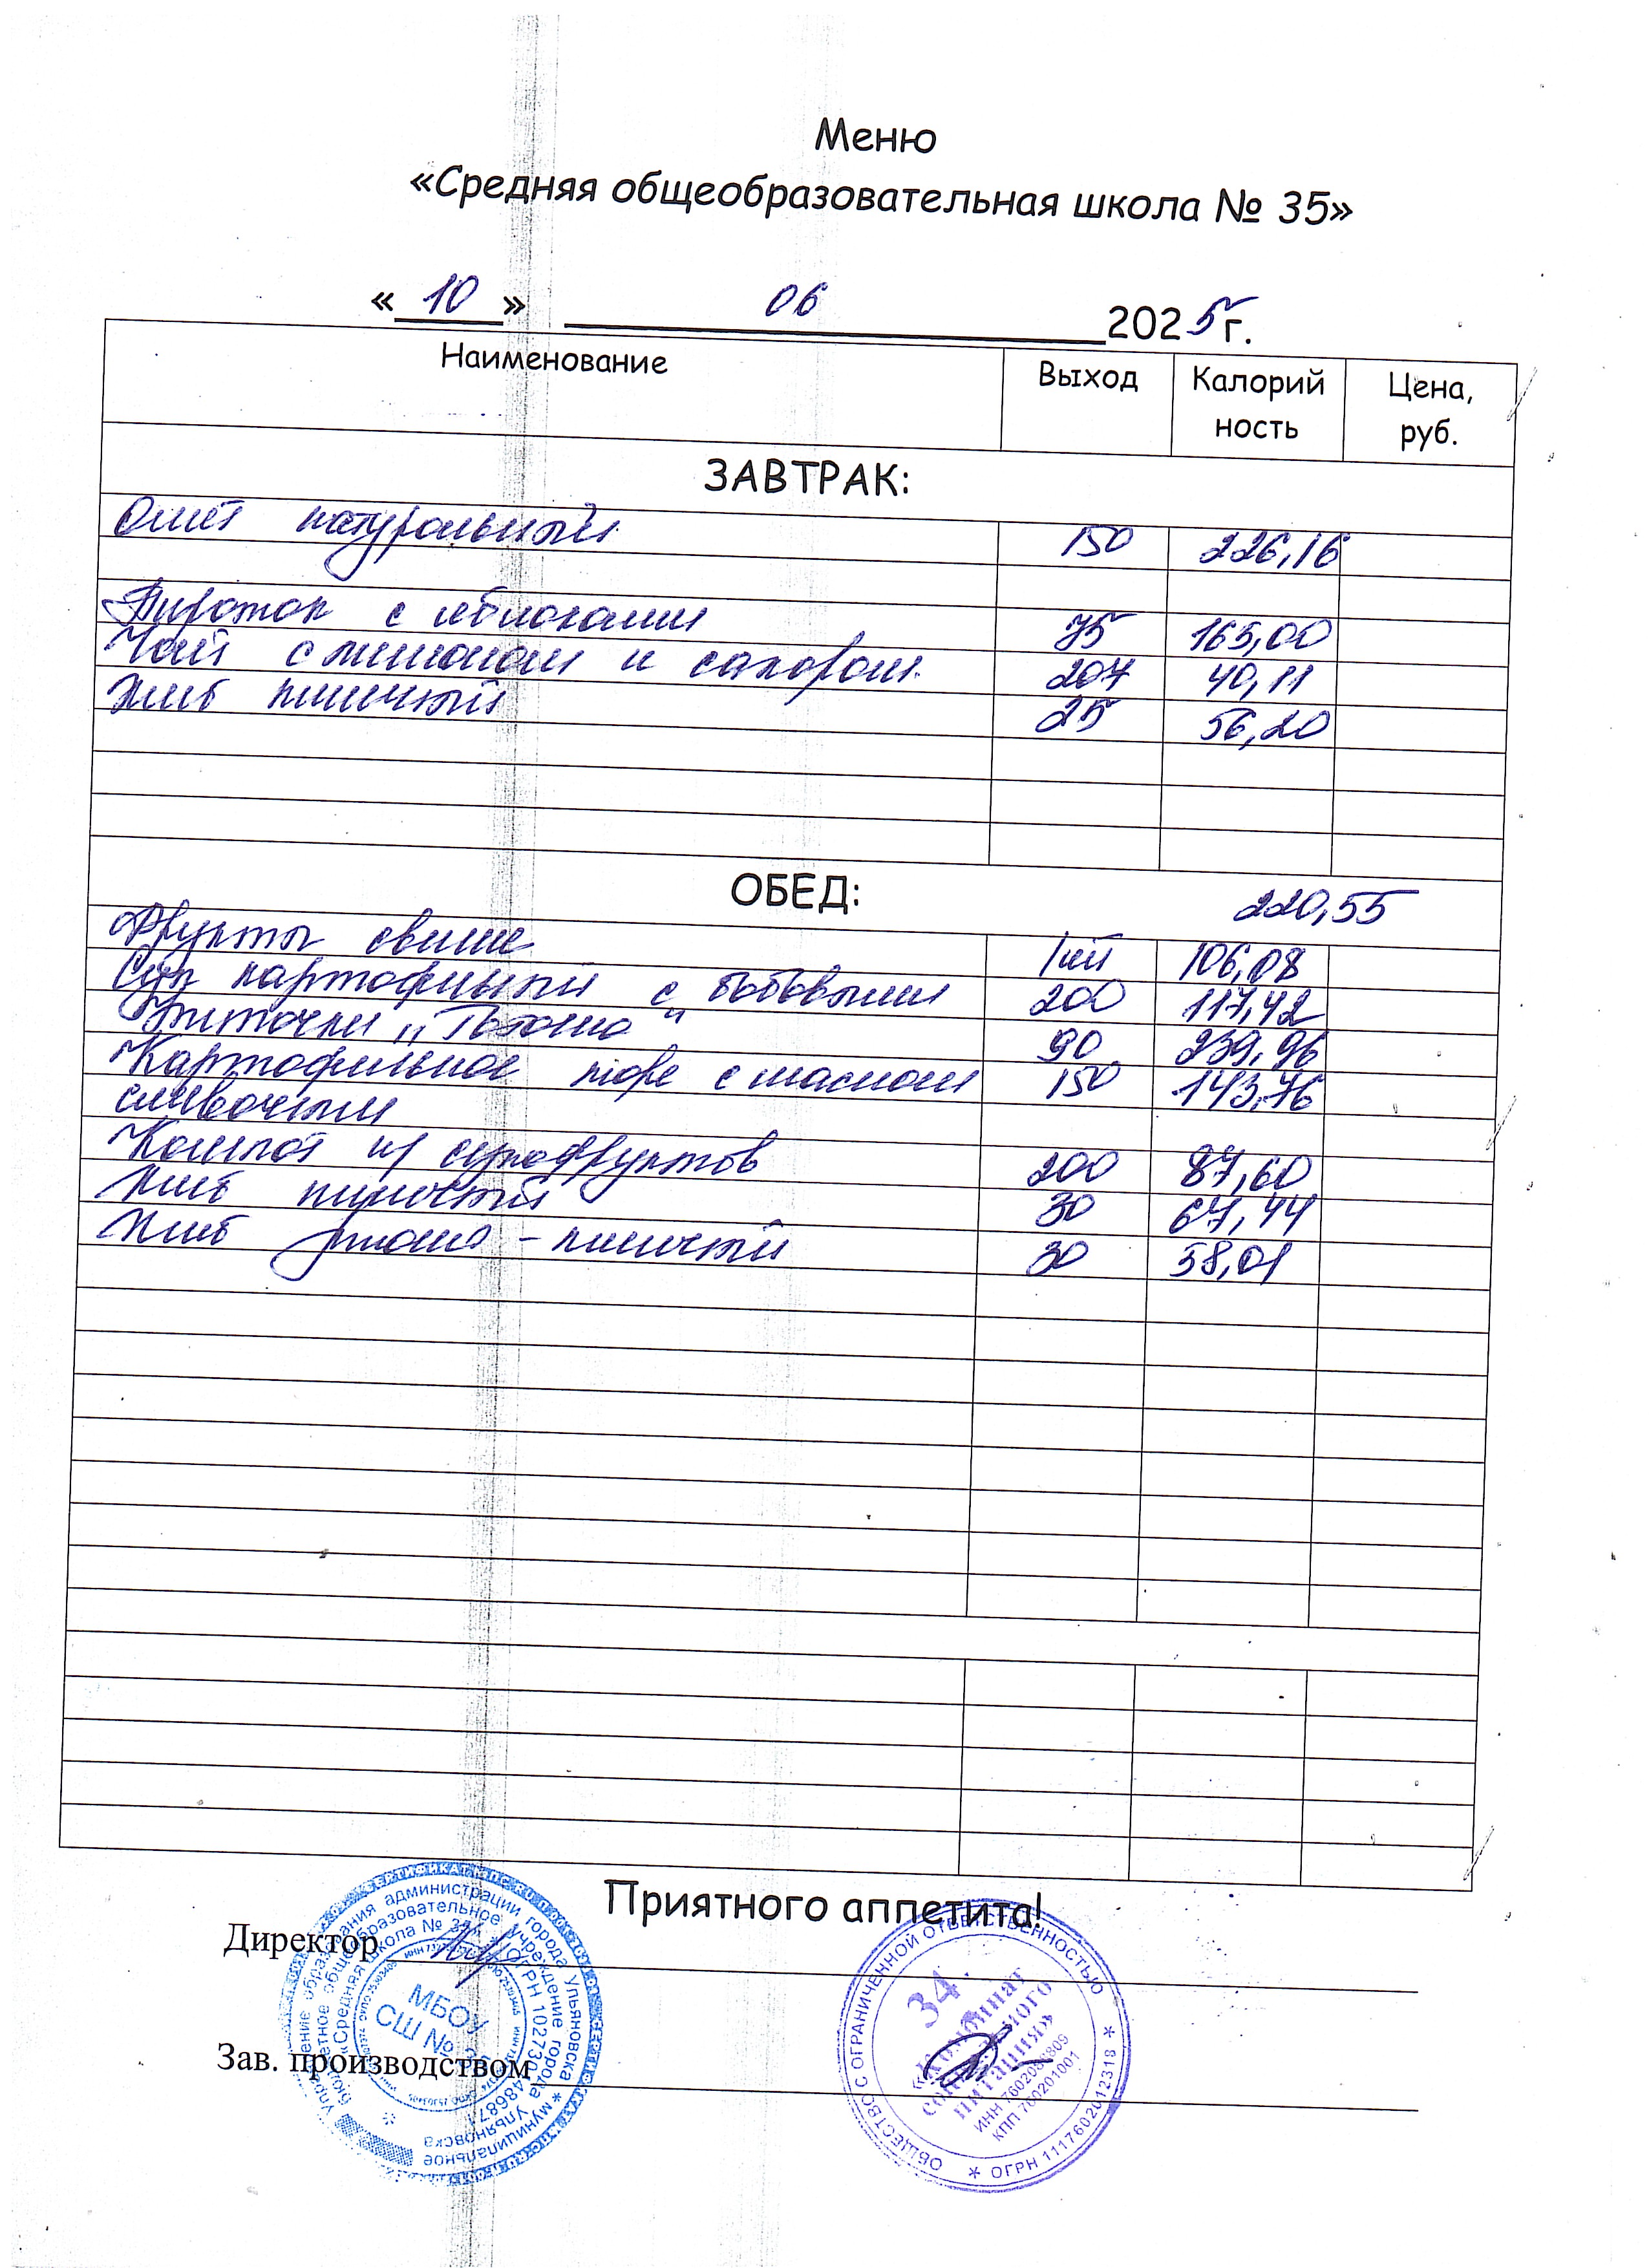 Меню
«Средняя общеобразовательная школа № 35»
« 10 » 06 2025 г.
Наименование Выход Калорий Цена,
ность руб.
ЗАВТРАК:
Омлет натуральный 150 226,16
Пирожок с яблоками 75 165,00
Чай с лимоном и сахаром 207 40,11
Хлеб пшеничный 25 56,20
ОБЕД: 220,55
Фрукты свежие 1шт 106,08
Суп картофельный с бобовыми 200 117,42
Биточки 90 239,96
Картофельное пюре с маслом 150 143,76
сливочным
Компот из сухофруктов 200 87,60
Хлеб пшеничный 30 67,44
Хлеб ржано-пшеничный 30 58,01
Приятного аппетита!
Директор
Зав. производством
МБОУ
СШ №
34.
«Комбинат
социального
питания»
ИНН 7602086809
КПП 760201001
ОБЩЕСТВО С ОГРАНИЧЕННОЙ ОТВЕТСТВЕННОСТЬЮ
ОГРН 1117602012318